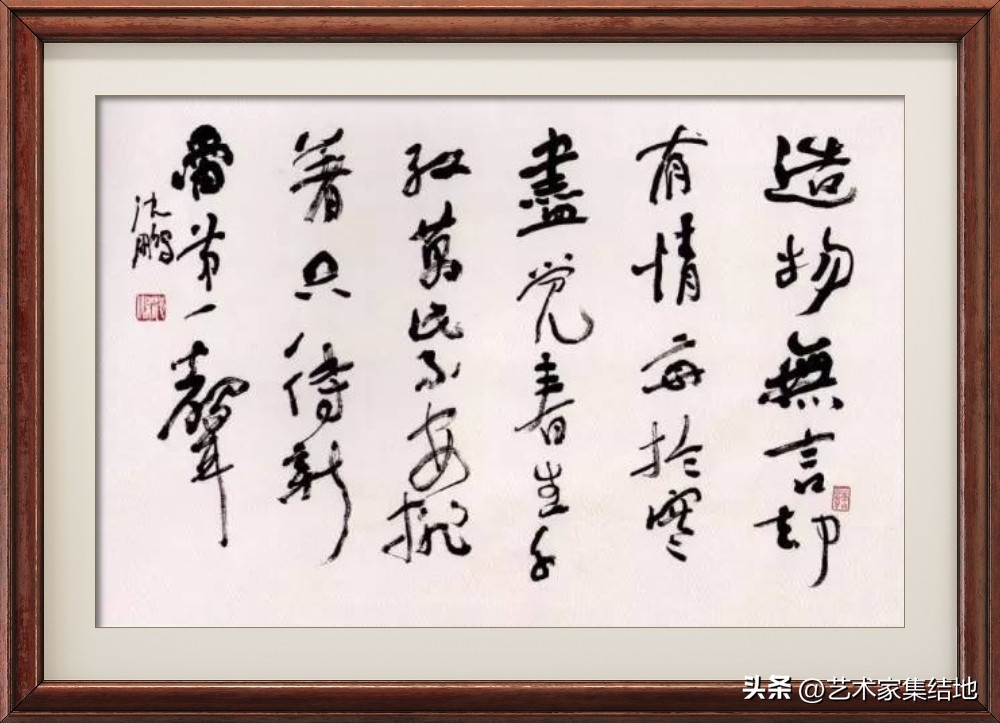 造物無言却
有情每於寒
盡覺春生千
紅萬紫安排
著只待新
雷第一聲
沈鵬
头条 @艺术家集结地